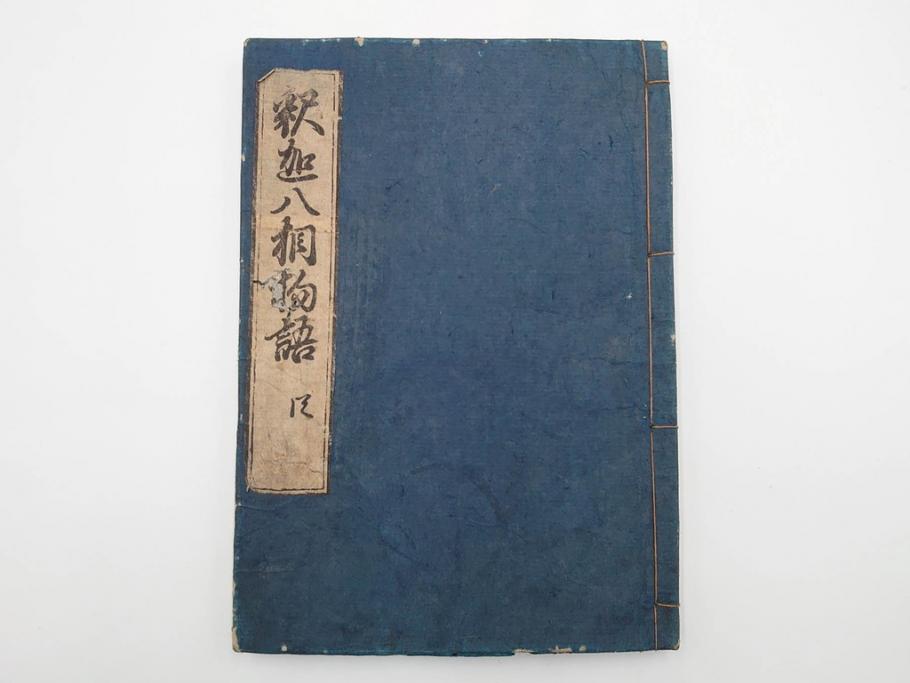 釈迦八相物語